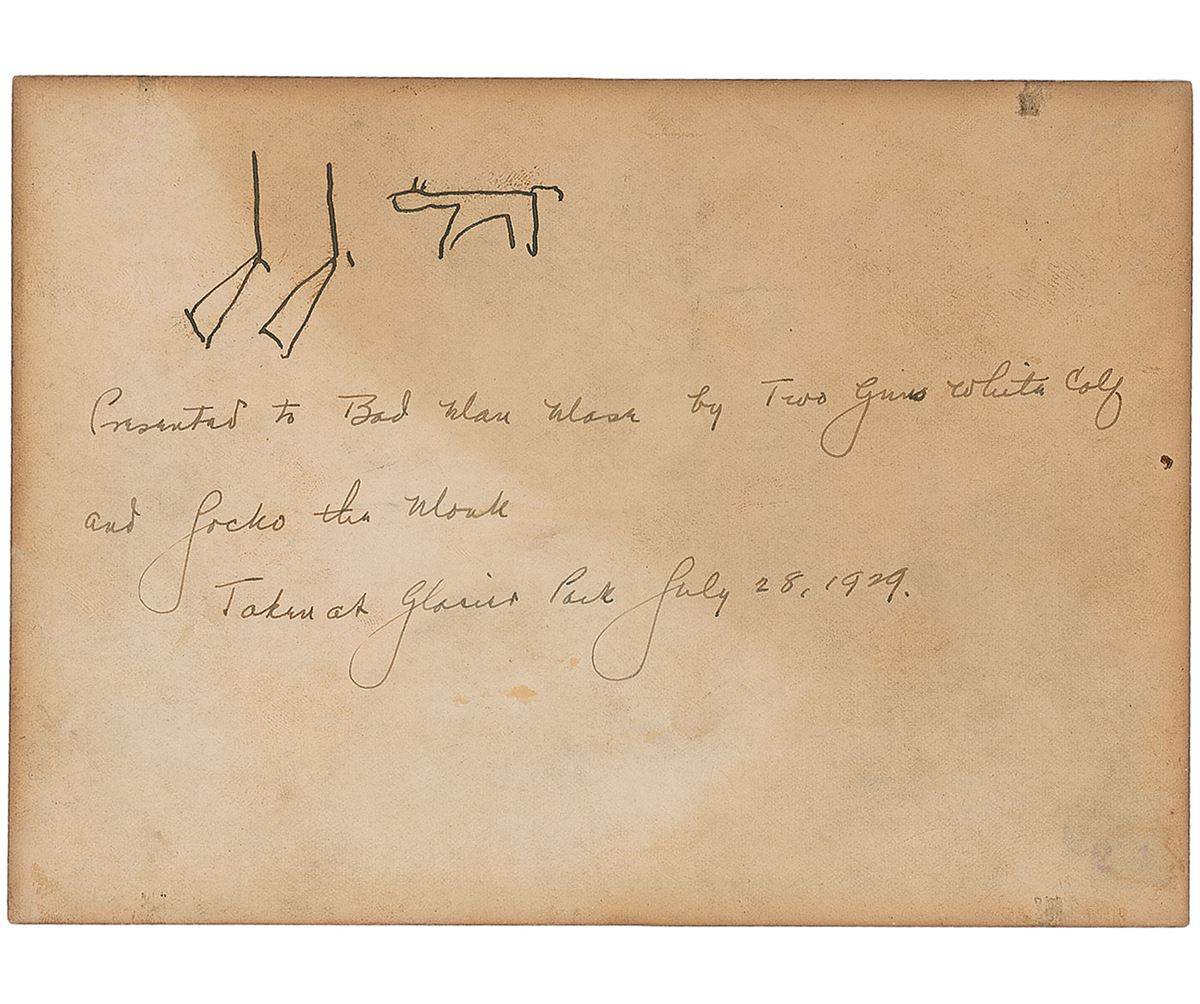 Presented to Bad Man by Two Guns White Calf
and Jocko the Monk
Taken at Glacier Park July 28, 1929.